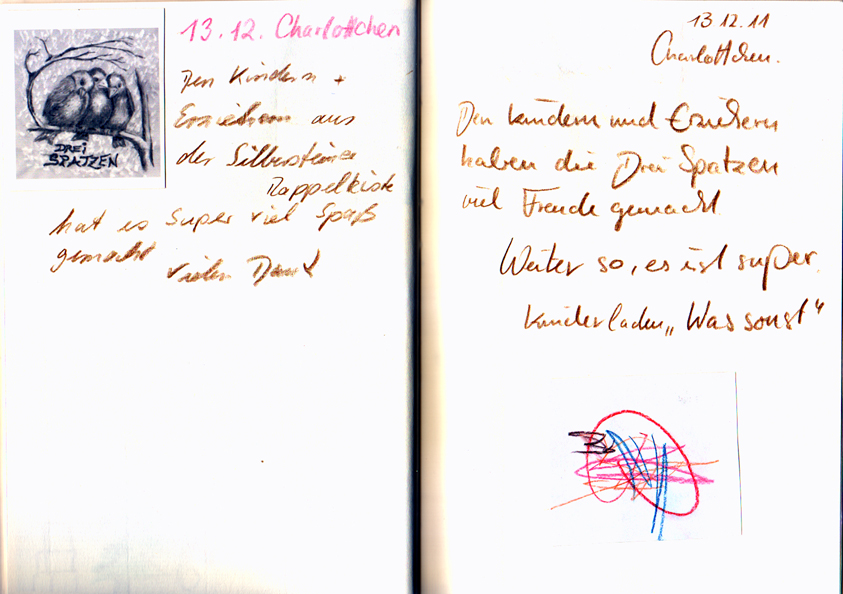 13.12. Charlottchen
DREI
SPATZEN
Den Kindern +
Erziehern aus
der Silbersteiner
Rappelkiste
hat es super viel Spaß
gemacht
Vielen Dank
13 12.11
Charlottchen.
Den Kindern und Erziehern
haben die Drei Spatzen
viel Freude gemacht
Weiter so, es ist super.
Kinderladen „Was sonst"